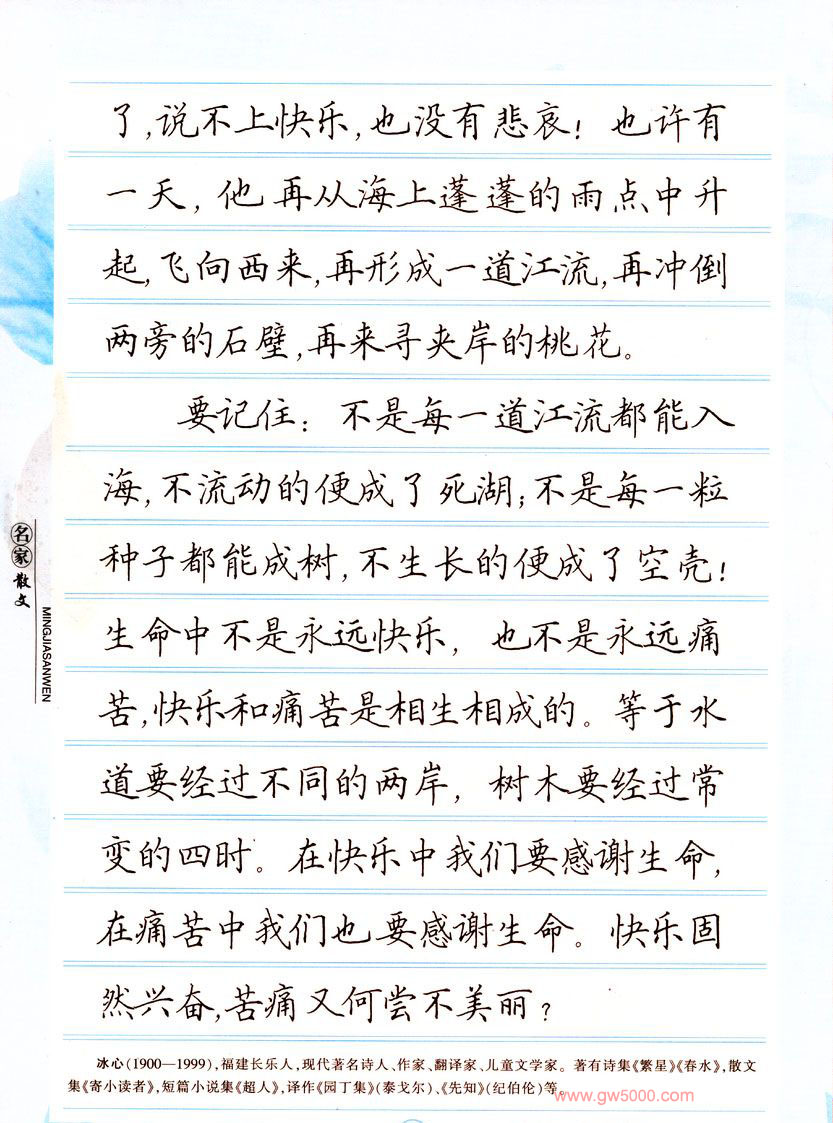 了,说不上快乐,也没有悲哀! 也许有
一天, 他再从海上蓬蓬的雨点中升
起,飞向西来,再形成一道江流,再冲倒
两旁的石壁,再来寻夹岸的桃花。
要记住: 不是每一道江流都能入
海,不流动的便成了死湖;不是每一粒
种子都能成树,不生长的便成了空壳!
生命中不是永远快乐, 也不是永远痛
苦,快乐和痛苦是相生相成的。等于水
道要经过不同的两岸, 树木要经过常
变的四时。在快乐中我们要感谢生命,
在痛苦中我们也要感谢生命。快乐固
然兴奋,苦痛又何尝不美丽?
名家散文
MINGJIASANWEN
冰心(1900—1999),福建长乐人,现代著名诗人、作家、翻译家、儿童文学家。著有诗集《繁星》《春水》,散文
集《寄小读者》,短篇小说集《超人》,译作《园丁集》(泰戈尔)、《先知》(纪伯伦)等。
www.gw5000.com